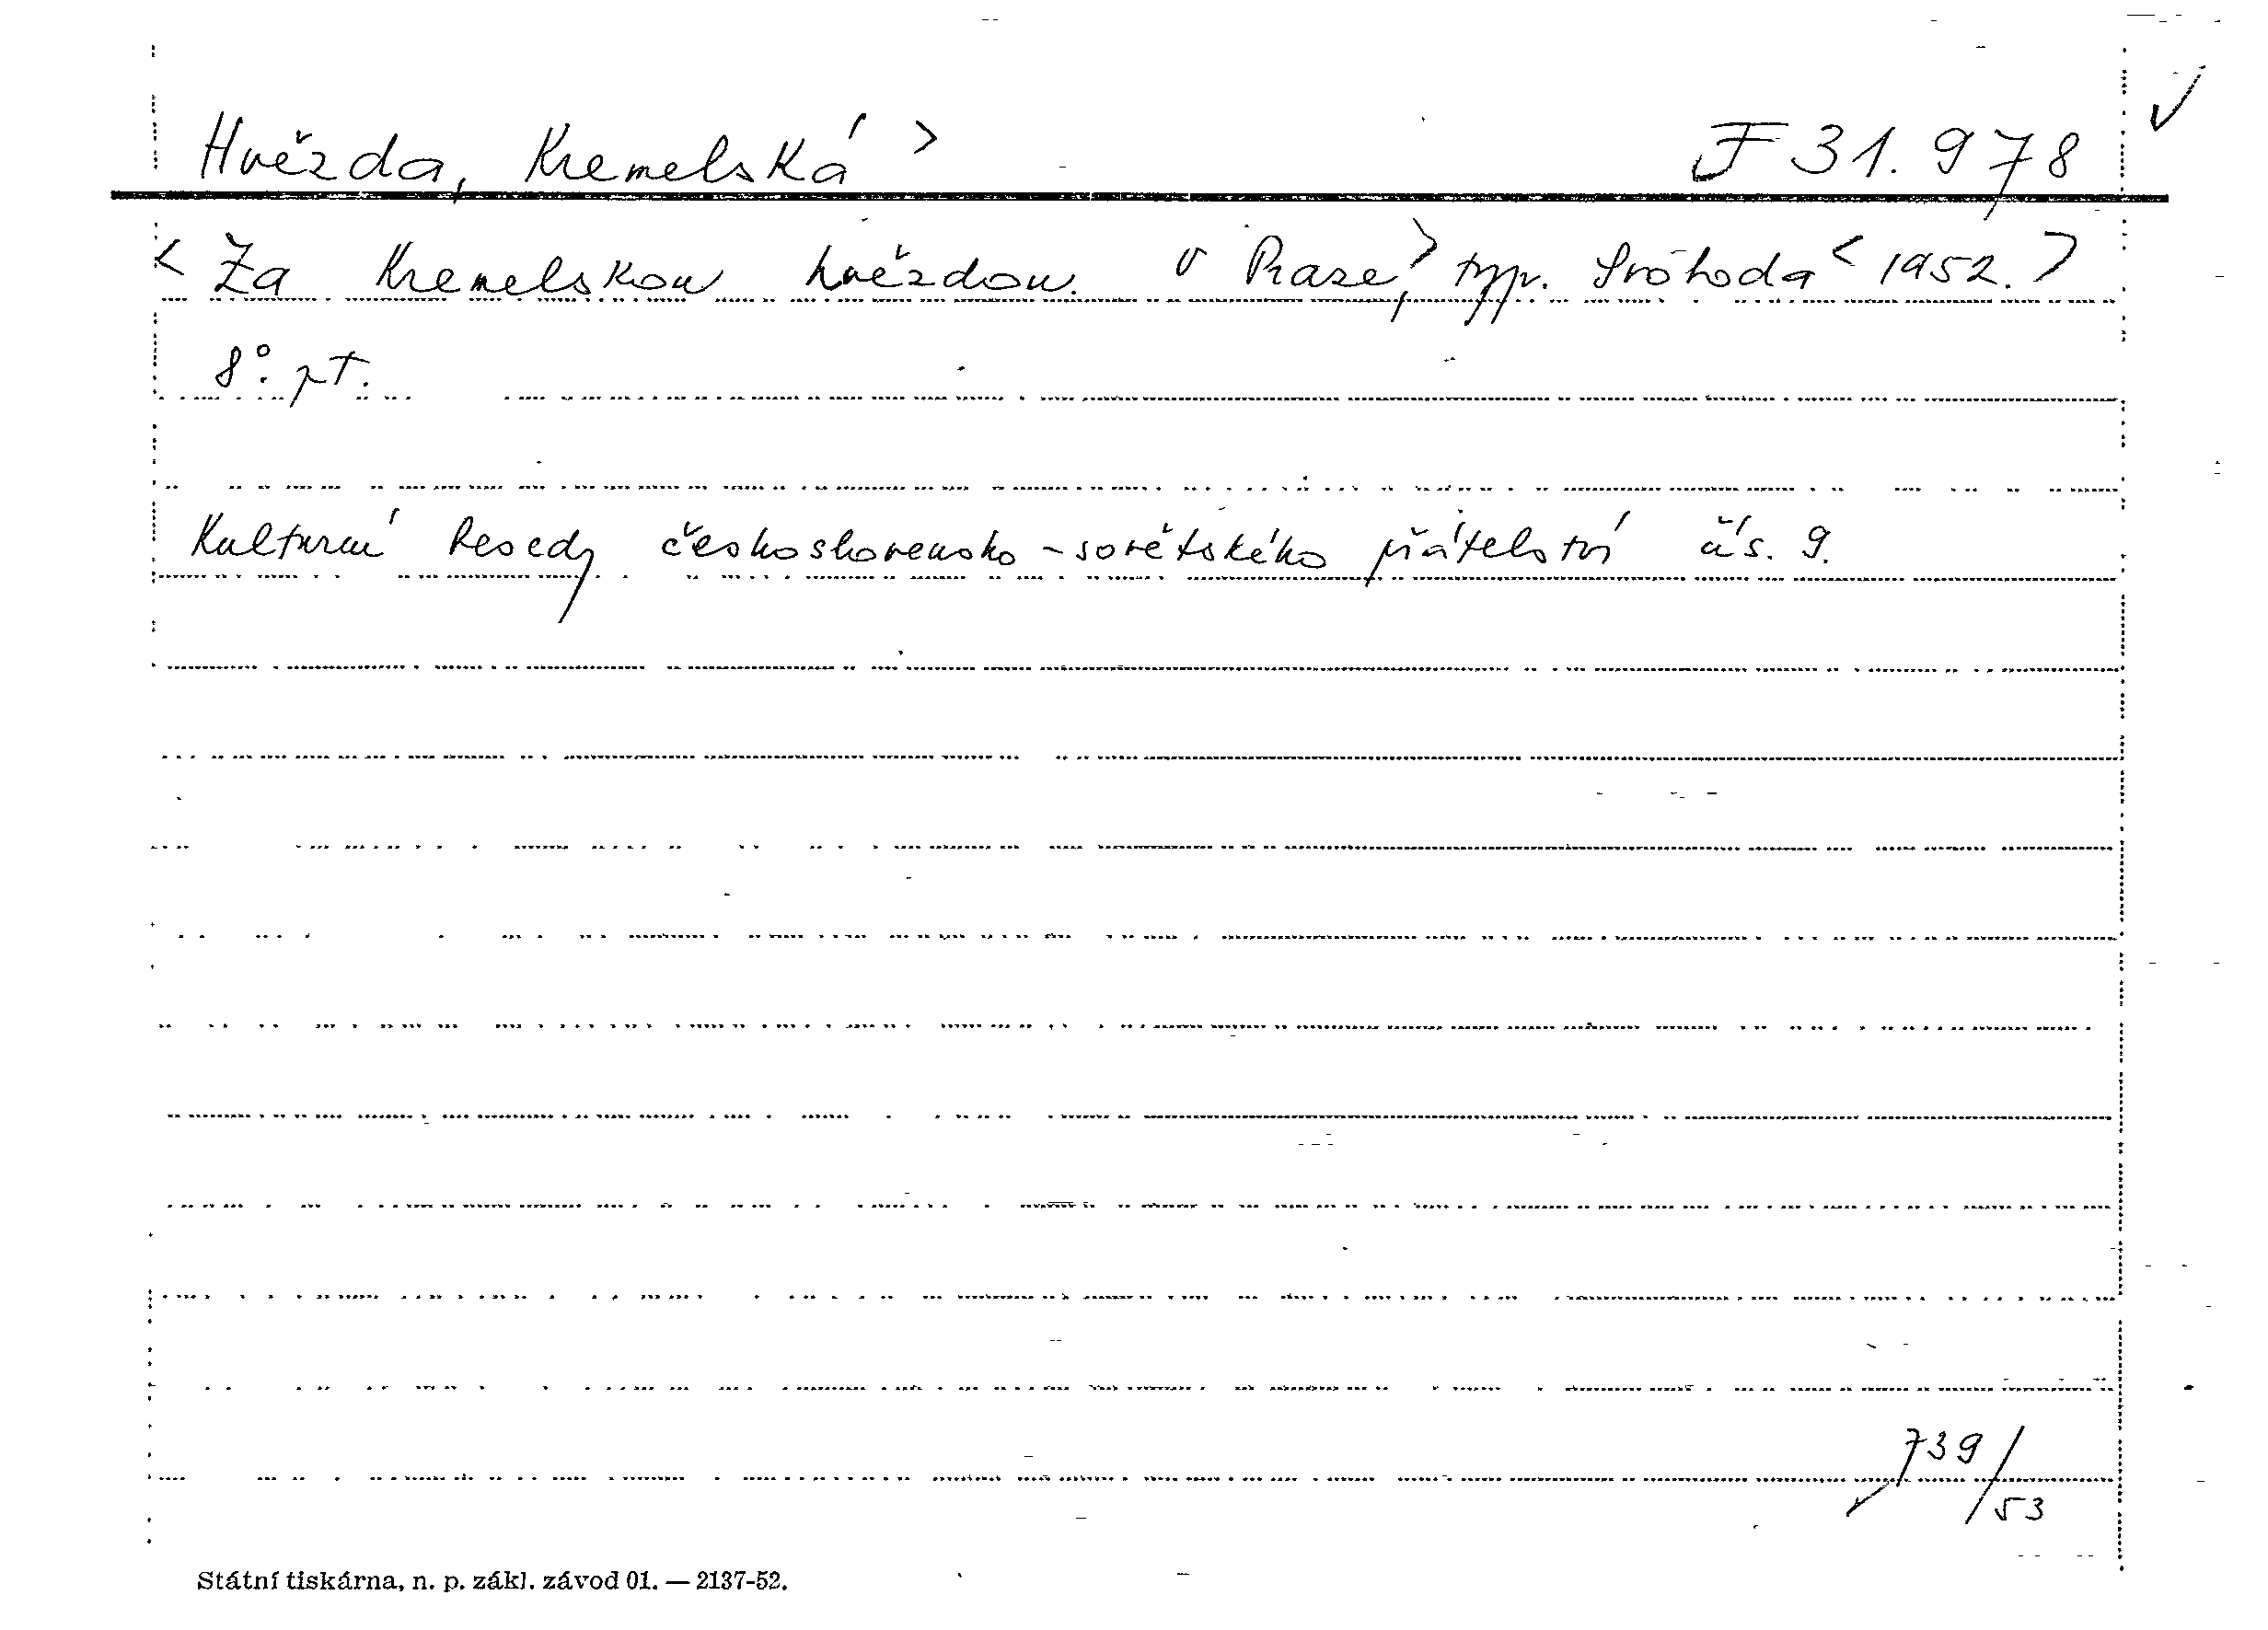 Hvězda, Kremelská > F 31.978
< Za Kremelskou hvězdou. V Praze,> typ. Svoboda < 1952. >
8°. pt.
Kulturní besedy československo-sovětského přátelství čís. 9.
739/53
Státní tiskárna, n. p. zákl. závod 01. — 2137-52.